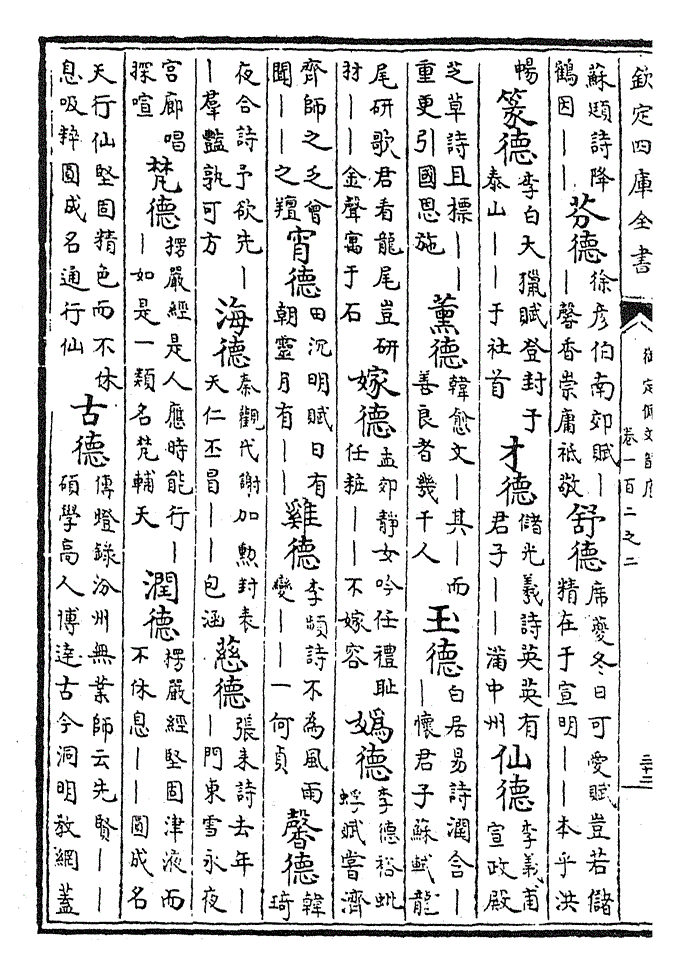 欽定四庫全書
御定佩文韻府
卷一百二之二
三十三
蘇頲詩降鶴因——芬德徐彥伯南郊賦——馨香崇庸祗敬舒德席夔冬日可愛賦豈若儲精在于宣明——本乎洪
暢篆德李白大獵賦登封于泰山——于社首才德儲光羲詩英英有君子——滿中州仙德李義甫宣政殿
芝草詩且標——重更引國恩施薰德韓愈文—其—而善良者幾千人玉德白居易詩潤合——懷君子蘇軾龍
尾研歌君看龍尾豈研材——金聲寓于石嫁德孟郊靜女吟任禮恥任粧——不嫁容媯德李德裕蚍蜉賦嘗濟
齊師之乏曾聞——之羶宵德田沉明賦日有朝靈月有——雞德李頻詩不為風雨變——一何貞馨德韓琦
夜合詩予欲先——羣豔孰可方海德秦觀代謝加勲封表天仁丕冒——包涵慈德張耒詩去年——門東雪永夜
宮廊唱探喧梵德楞嚴經是人應時能行——如是一類名梵輔天潤德楞嚴經堅固津液而不休息——圓成名
天行仙堅固精色而不休息吸粹圓成名通行仙古德傳燈錄汾州無業師云先賢——碩學高人博達古今洞明教網蓋